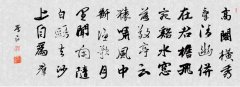 高閣橫秀
氣清幽併
在君簷飛
宛谿水窗
落敬亭云
猿嘯風中
斷漁歌月
里聞閒隨
白鷗去沙
上自為群